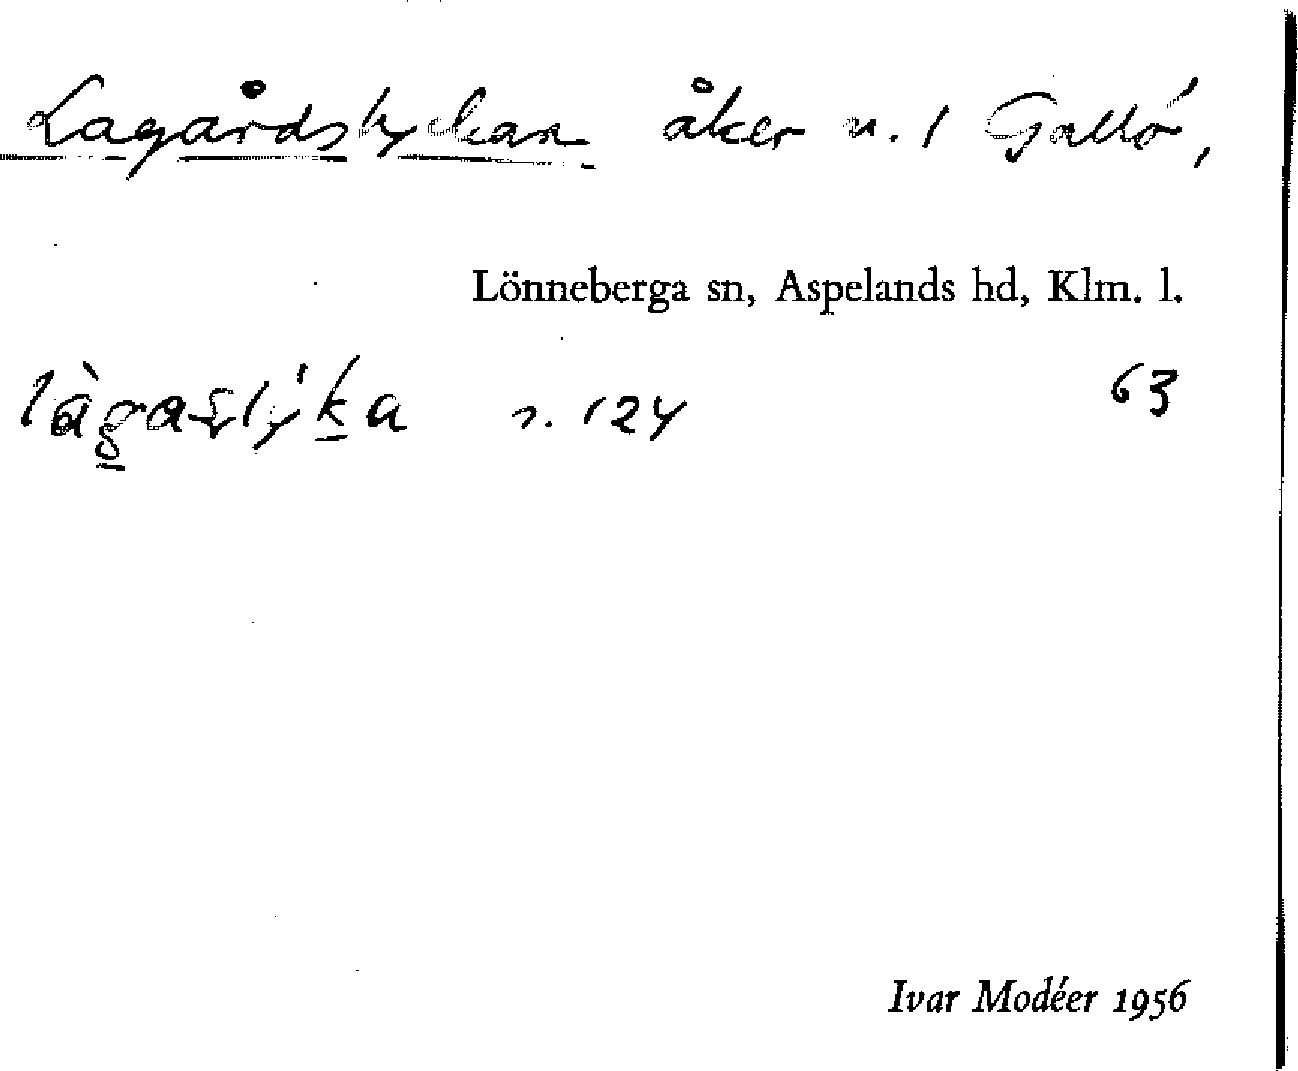 Lagårdstyckan åker n. 1 Gallö,
Lönneberga sn, Aspelands hd, Klm. l.
n. 124 63
Ivar Modéer 1956